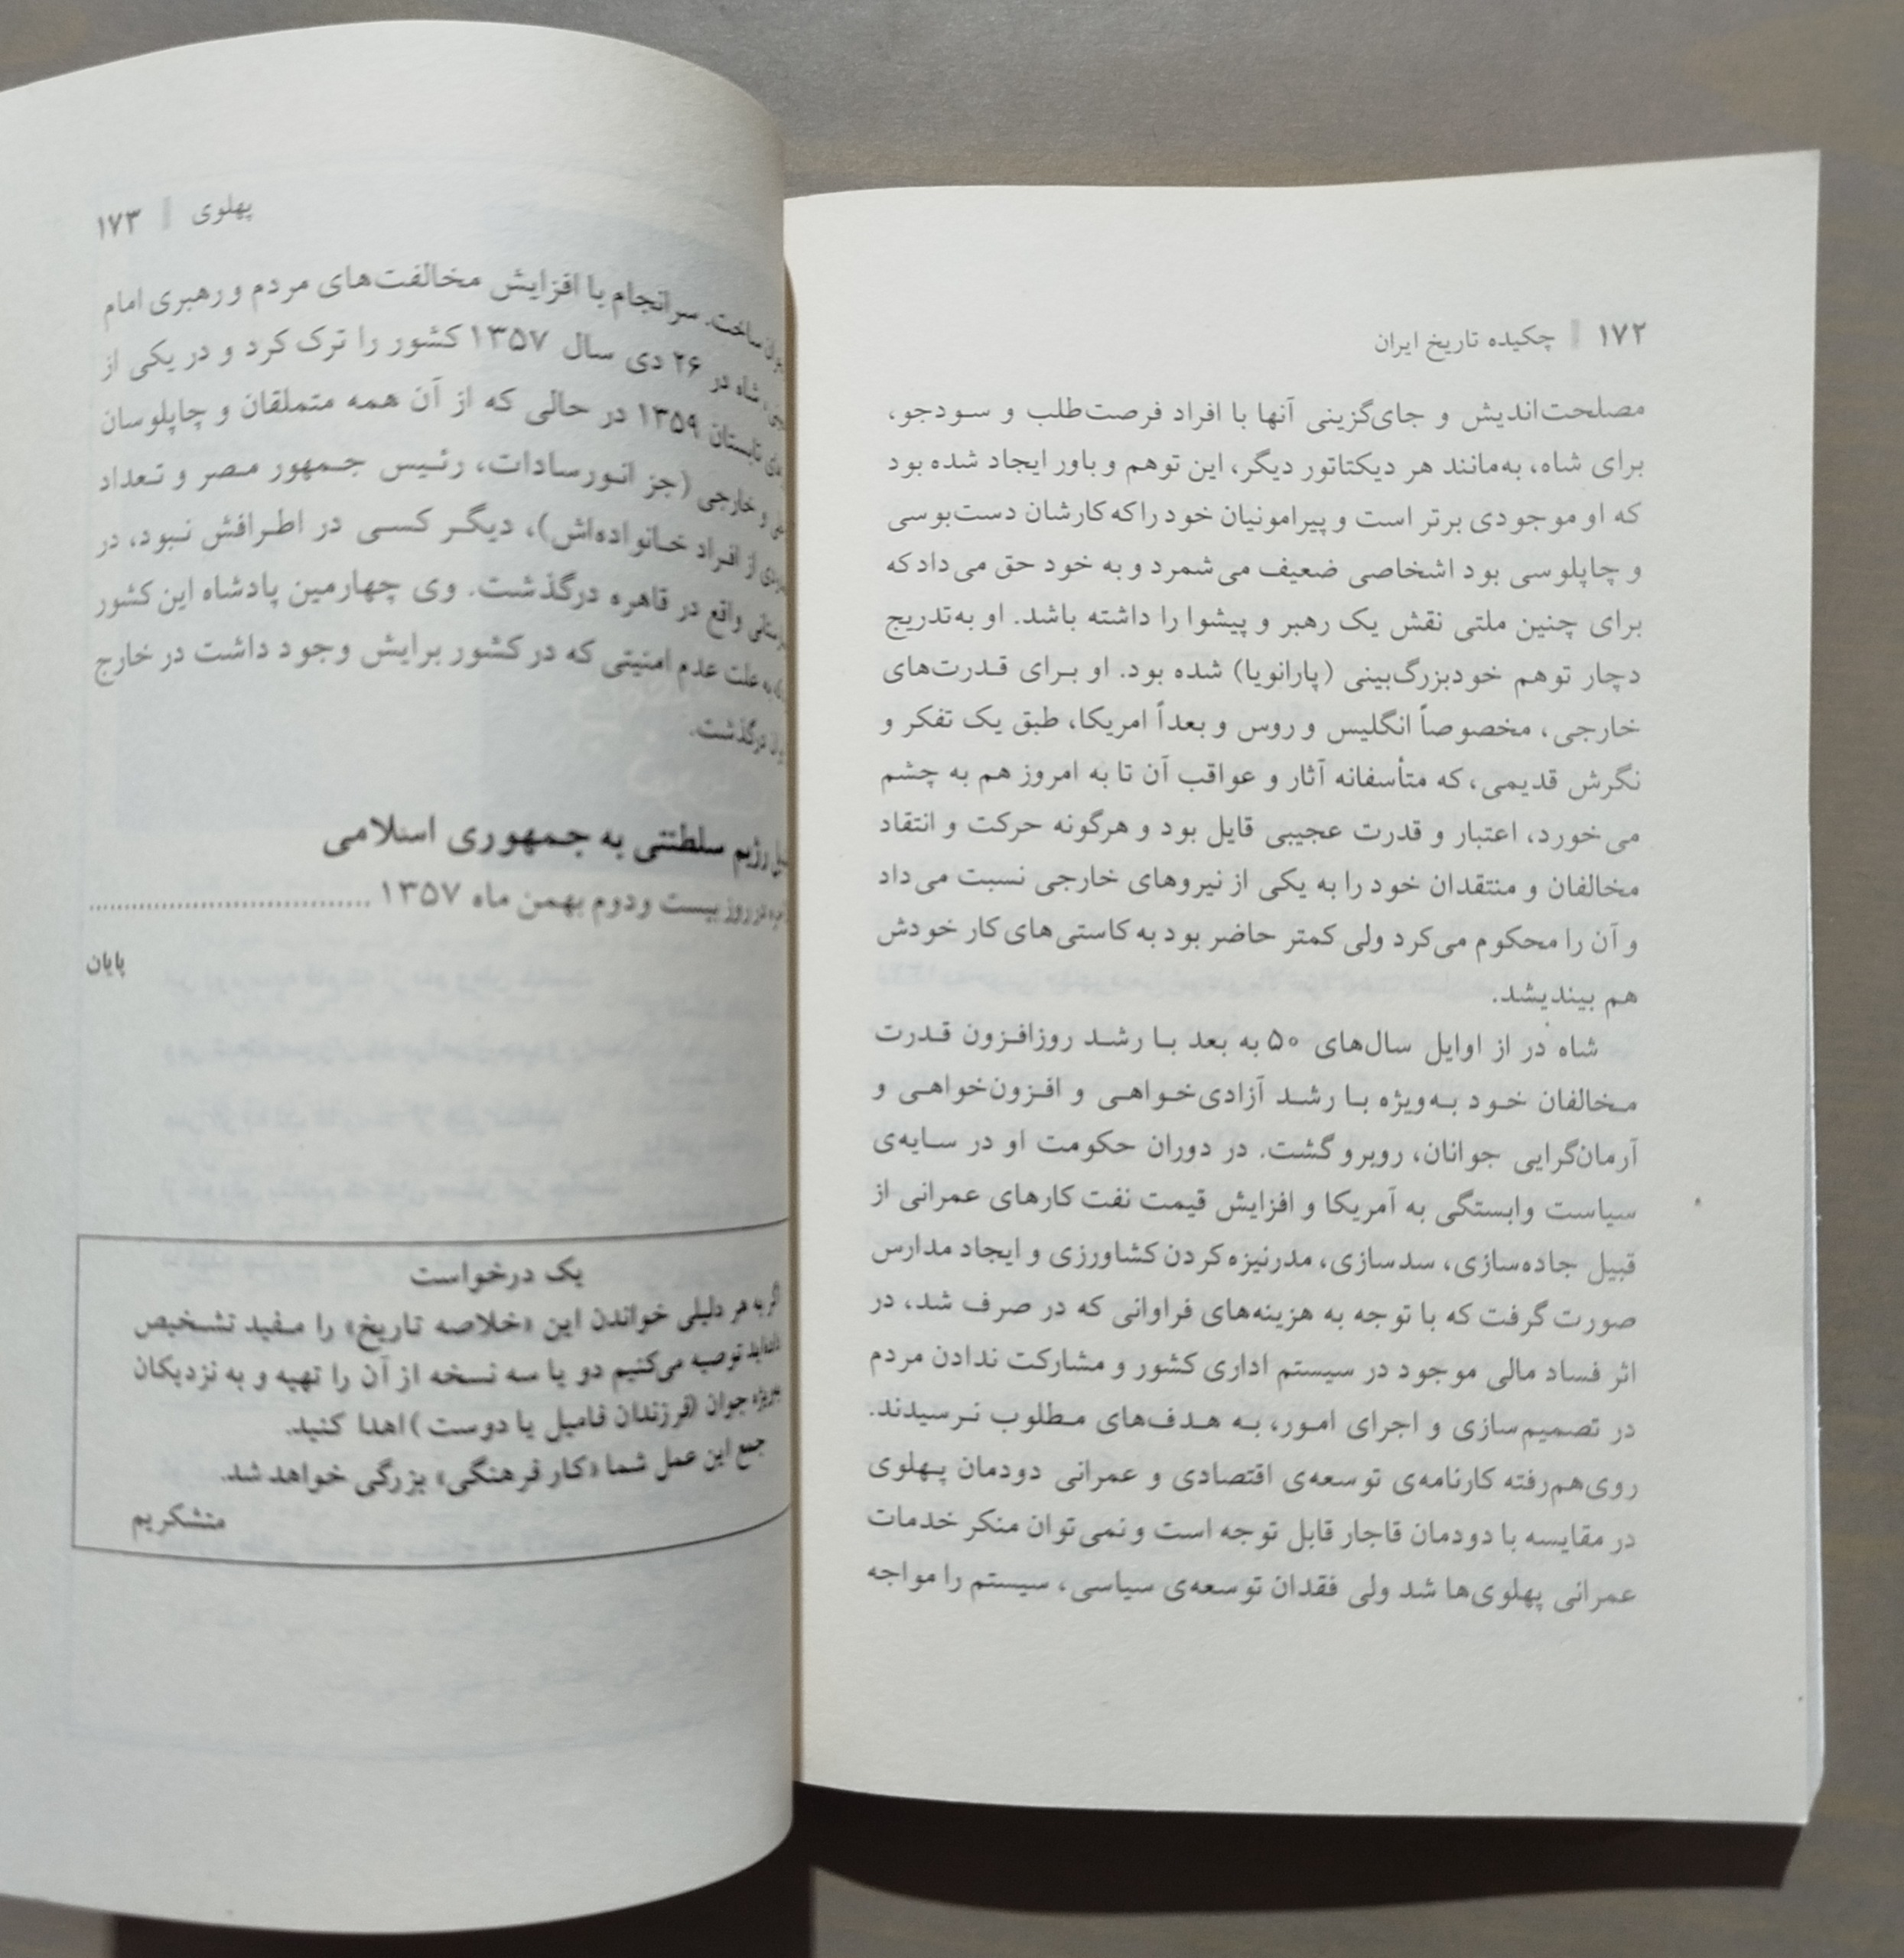 ۱۷۲ | چکیده تاریخ ایران
مصلحت‌اندیش و جای‌گزینی آنها با افراد فرصت‌طلب و سودجو،
برای شاه، به‌مانند هر دیکتاتور دیگر، این توهم و باور ایجاد شده بود
که او موجودی برتر است و پیرامونیان خود را که کارشان دست‌بوسی
و چاپلوسی بود اشخاصی ضعیف می‌شمرد و به خود حق می‌داد که
برای چنین ملتی نقش یک رهبر و پیشوا را داشته باشد. او به‌تدریج
دچار توهم خودبزرگ‌بینی (پارانویا) شده بود. او برای قدرت‌های
خارجی، مخصوصاً انگلیس و روس و بعداً امریکا، طبق یک تفکر و
نگرش قدیمی، که متأسفانه آثار و عواقب آن تا به امروز هم به چشم
می‌خورد، اعتبار و قدرت عجیبی قایل بود و هرگونه حرکت و انتقاد
مخالفان و منتقدان خود را به یکی از نیروهای خارجی نسبت می‌داد
و آن را محکوم می‌کرد ولی کمتر حاضر بود به کاستی‌های کار خودش
هم بیندیشد.
شاه در از اوایل سال‌های ۵۰ به بعد با رشد روزافزون قدرت
مخالفان خود به‌ویژه با رشد آزادی‌خواهی و افزون‌خواهی و
آرمان‌گرایی جوانان، روبرو گشت. در دوران حکومت او در سایه‌ی
سیاست وابستگی به آمریکا و افزایش قیمت نفت کارهای عمرانی از
قبیل جاده‌سازی، سدسازی، مدرنیزه کردن کشاورزی و ایجاد مدارس
صورت گرفت که با توجه به هزینه‌های فراوانی که در صرف شد، در
اثر فساد مالی موجود در سیستم اداری کشور و مشارکت ندادن مردم
در تصمیم‌سازی و اجرای امور، به هدف‌های مطلوب نرسیدند.
روی‌هم‌رفته کارنامه‌ی توسعه‌ی اقتصادی و عمرانی دودمان پهلوی
در مقایسه با دودمان قاجار قابل توجه است و نمی‌توان منکر خدمات
عمرانی پهلوی‌ها شد ولی فقدان توسعه‌ی سیاسی، سیستم را مواجه
پهلوی | ۱۷۳
ساخت. سرانجام با افزایش مخالفت‌های مردم و رهبری امام
شاه در ۲۶ دی سال ۱۳۵۷ کشور را ترک کرد و در یکی از
تابستان ۱۳۵۹ در حالی که از آن همه متملقان و چاپلوسان
و خارجی (جز انورسادات، رئیس جمهور مصر و تعداد
از افراد خانواده‌اش)، دیگر کسی در اطرافش نبود، در
واقع در قاهره درگذشت. وی چهارمین پادشاه این کشور
به علت عدم امنیتی که در کشور برایش وجود داشت در خارج
درگذشت.
رژیم سلطنتی به جمهوری اسلامی
در روز بیست و دوم بهمن ماه ۱۳۵۷ ........................................
پایان
یک درخواست
اگر به هر دلیلی خواندن این «خلاصه تاریخ» را مفید تشخیص
توصیه می‌کنیم دو یا سه نسخه از آن را تهیه و به نزدیکان
جوان (فرزندان فامیل یا دوست) اهدا کنید.
جمع این عمل شما «کار فرهنگی» بزرگی خواهد شد.
متشکریم